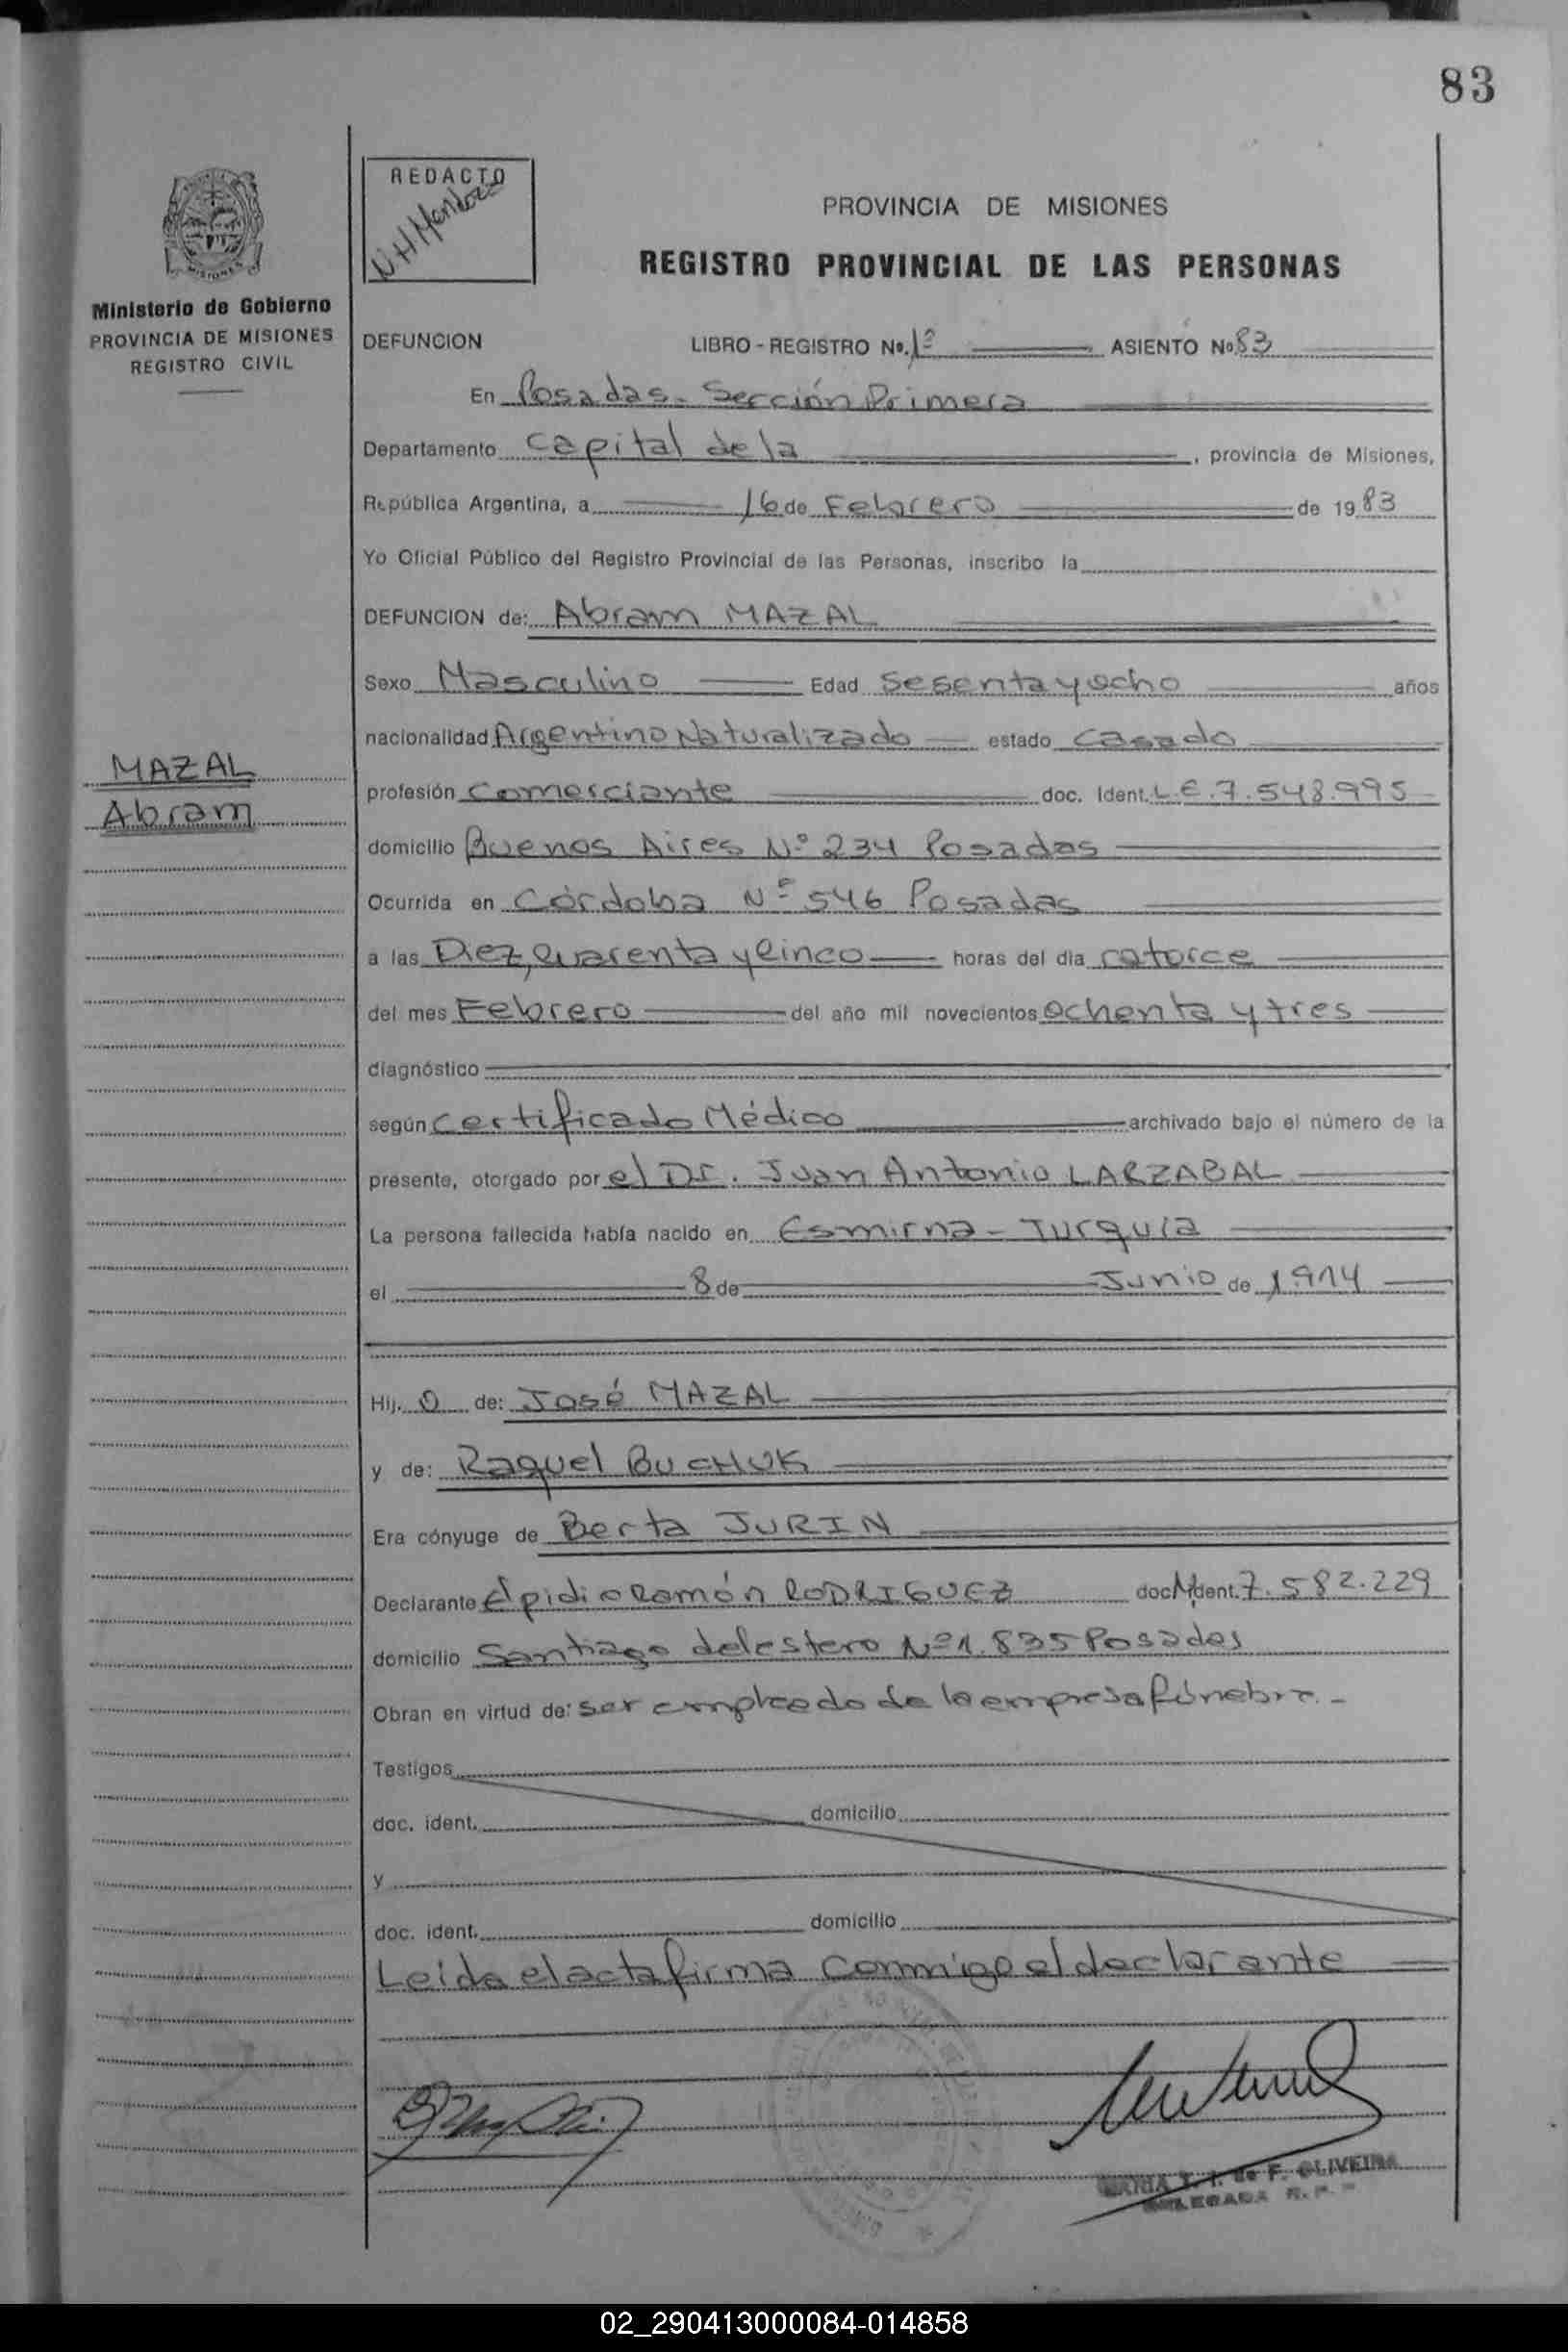 83
REDACTO
N H Mendoza
PROVINCIA DE MISIONES
REGISTRO PROVINCIAL DE LAS PERSONAS
MISIONES
Ministerio de Gobierno
PROVINCIA DE MISIONES
REGISTRO CIVIL
DEFUNCION LIBRO - REGISTRO Nº. 1º ASIENTO Nº 83
En Posadas - Sección Primera
Departamento Capital de la , provincia de Misiones,
República Argentina, a 16 de Febrero de 1983
Yo Oficial Público del Registro Provincial de las Personas, inscribo la
DEFUNCION de: Abram MAZAL
Sexo Masculino Edad Sesenta y ocho años
nacionalidad Argentino Naturalizado estado Casado
MAZAL
Abram
profesión Comerciante doc. Ident. L.E. 7.548.995
domicilio Buenos Aires Nº 234 Posadas
Ocurrida en Córdoba Nº 546 Posadas
a las Diez, cuarenta y cinco horas del día catorce
del mes Febrero del año mil novecientos ochenta y tres
diagnóstico
según Certificado Médico archivado bajo el número de la
presente, otorgado por el Dr. Juan Antonio LARZABAL
La persona fallecida había nacido en Esmirna - Turquía
el 8 de Junio de 1.914
Hij. o de: José MAZAL
y de: Raquel BUCHUK
Era cónyuge de Berta JURIN
Declarante Elpidio Ramón RODRIGUEZ doc. Ident. 7.582.229
domicilio Santiago del estero Nº 1.835 Posadas
Obran en virtud de: ser empleado de la empresa fúnebre.-
Testigos
doc. ident. domicilio
y
doc. ident. domicilio
Leída el acta firma conmigo el declarante
MARIA T. I. de F. OLIVEIRA
DELEGADA R. P.
02_290413000084-014858